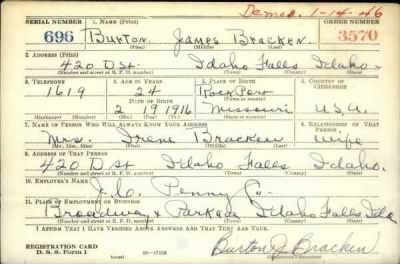 Demos. 1-14-46
SERIAL NUMBER 1. NAME (Print) ORDER NUMBER
696 Burton James Bracken 3570
(First) (Middle) (Last)
2. ADDRESS (Print)
420 D St. Idaho Falls Idaho
(Number and street or R. F. D. number) (Town) (County) (State)
3. TELEPHONE 4. AGE IN YEARS 5. PLACE OF BIRTH 6. COUNTRY OF CITIZENSHIP
1619 24 Rock Port
DATE OF BIRTH (Town or county)
2 19 1916 Missouri U.S.A.
(Exchange) (Number) (Mo.) (Day) (Yr.) (State or country)
7. NAME OF PERSON WHO WILL ALWAYS KNOW YOUR ADDRESS 8. RELATIONSHIP OF THAT PERSON
Mrs. Irene Bracken Wife
(Mr., Mrs., Miss) (First) (Middle) (Last)
9. ADDRESS OF THAT PERSON
420 D St Idaho Falls Idaho.
(Number and street or R. F. D. number) (Town) (County) (State)
10. EMPLOYER'S NAME
J.C. Penny Co.
11. PLACE OF EMPLOYMENT OR BUSINESS
Broadway & Parkave Idaho Falls Ida
(Number and street or R. F. D. number) (Town) (County) (State)
I AFFIRM THAT I HAVE VERIFIED ABOVE ANSWERS AND THAT THEY ARE TRUE.
REGISTRATION CARD
D. S. S. Form 1 Burton J Bracken
(over)